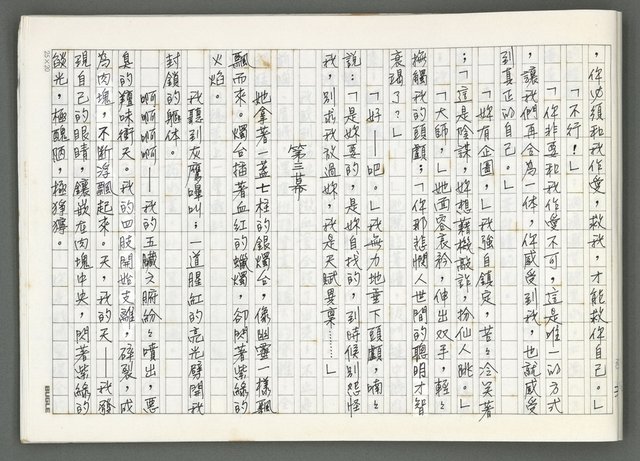 ，你必須和我作愛，救我，才能救你自己。」
「不行！」
「你非要和我作愛不可，這是唯一的方式
，讓我們再合為一体，你感受到我，也就感受
到真正的自己。」
「妳有企圖，」我強自鎮定，苦苦冷笑著
；「這是陰謀，妳想藉機敲詐，扮仙人跳。」
「大師，」她面容哀矜，伸出双手，輕々
撫觸我的頭顱；「你那悲憫人世間的聰明才智
衰竭了？」
「好——吧。」我無力地垂下頭顱，喃々
說：「是妳要的，是妳自找的，到時候別怨怪
我，別求我放過妳，我是天賦異稟……」
第三幕
她拿著一盞七柱的銀燭台，像幽靈一樣飄
飄而來。燭台插著血紅的蠟燭，卻閃著紫綠的
火焰。
我聽到灰鷹嘷叫；一道腥紅的亮光劈開我
封鎖的軀体。
啊啊啊啊——我的五臟六腑紛々噴出，惡
臭的羶味衝天。我的四肢開始支離，碎裂，成
為肉塊，不斷浮飄起來。天，我的天——我發
現自己的眼睛，鑲嵌在肉塊中央，閃著紫綠的
燄光，極醜陋，極猙獰。
25×20